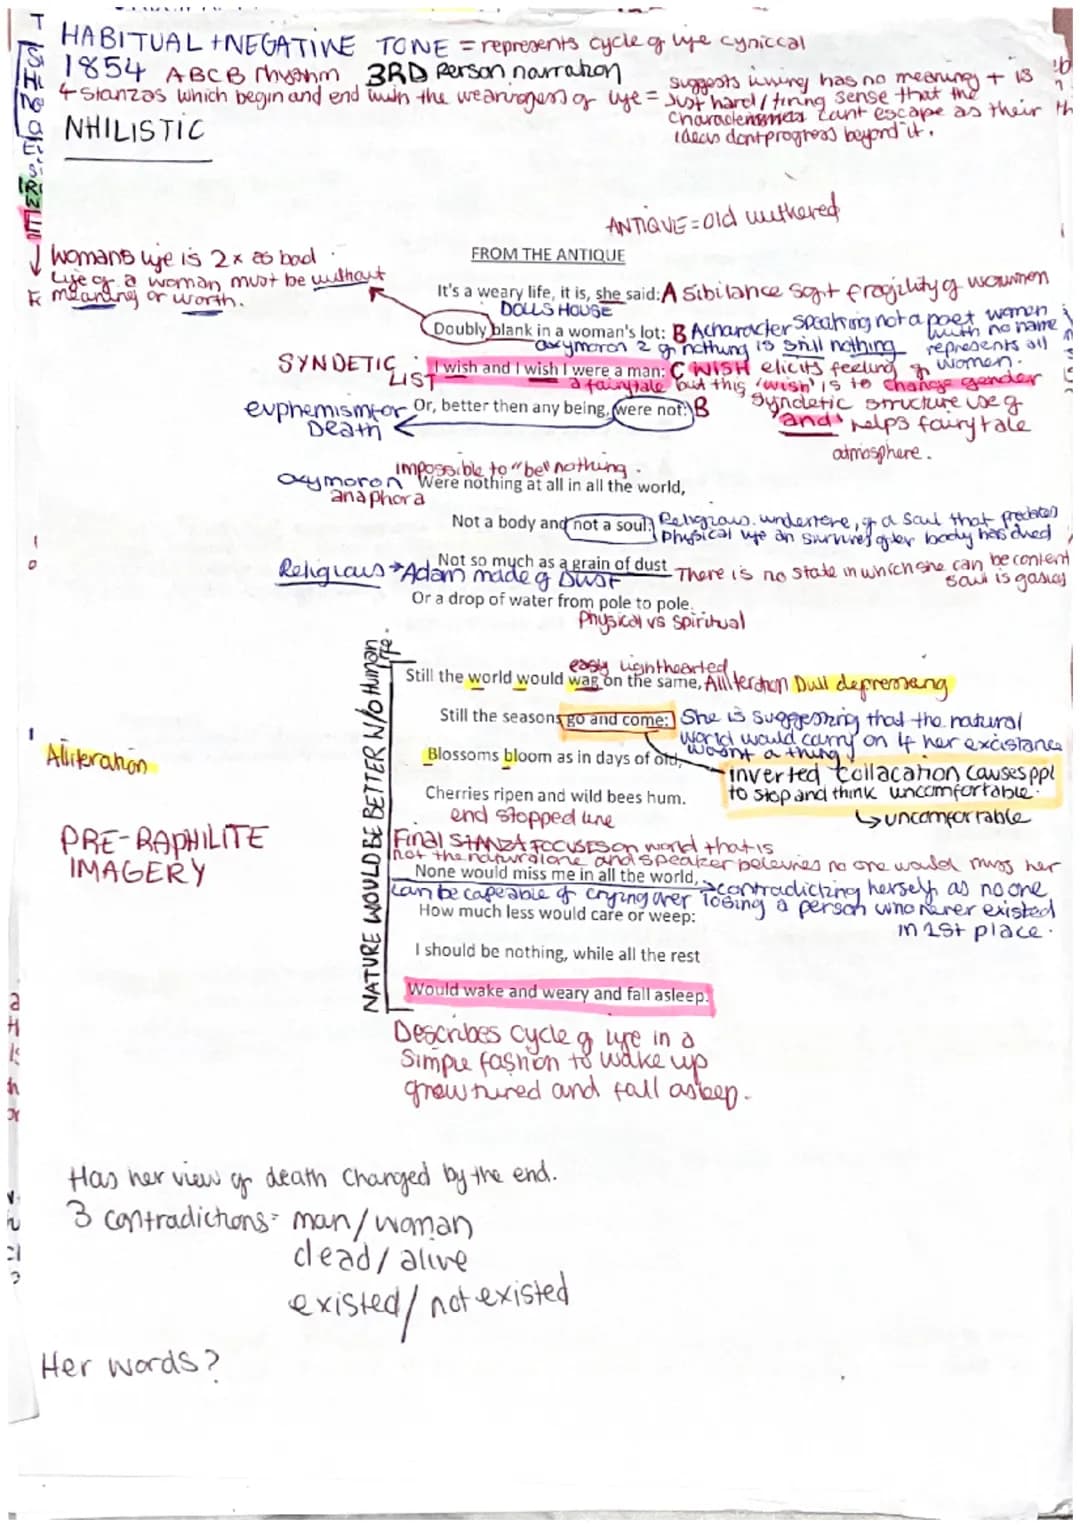 HABITUAL + NEGATIVE TONE = represents cycle of life cyniccal
1854 ABCB rhythm 3RD Person narration
4 stanzas which begin and end with the weariness of life =
suggests living has no meaning + is
Just hard/tiring sense that the
cant escape as their
ideas dont progress beyond it.
NHILISTIC
ANTIQUE = old withered
womans life is 2x as bad
Life of a woman must be without
meaning or worth.
FROM THE ANTIQUE
It's a weary life, it is, she said: A Sibilance soft fragility of women
DOLLS HOUSE
Doubly blank in a woman's lot: B A character speaking not a poet women
with no name
represents all
women.
oxymoron 2 of nothing is still nothing
SYNDETIC
LIST
I wish and I wish I were a man: C WISH elicits feeling of
a fairytale but this 'wish' is to change gender
euphemism for
Death
Or, better then any being, were not: B
Syndetic structure use of
and helps fairytale
atmosphere.
impossible to "be" nothing.
oxymoron
anaphora
Were nothing at all in all the world,
Not a body and not a soul:
Religious undertone, of a soul that predates
physical life an survives after body has died
Not so much as a grain of dust
Religious → Adam made of Dust
There is no state in which she can be content
soul is gasies
Or a drop of water from pole to pole.
Physical vs spiritual
NATURE WOULD BE BETTER N/O Human life.
easy lighthearted
Still the world would wag on the same, Alliteration Dull depressing
Still the seasons go and come:
She is suggesting that the natural
world would carry on if her existance
wasnt a thing
Alliteration
Blossoms bloom as in days of old,
inverted collacation causes ppl
to stop and think uncomfortable.
↳ uncomfortable
Cherries ripen and wild bees hum.
end stopped line
PRE-RAPHILITE
IMAGERY
Final STANZA FOCUSES on world that is
not the natural one and speaker beleives no one would miss her
None would miss me in all the world,
→ contradicting herself as no one
can be capeable of crying over losing a person who never existed
in 1st place.
How much less would care or weep:
I should be nothing, while all the rest
Would wake and weary and fall asleep.
Describes cycle of life in a
simple fashion to wake up
grow tured and fall asleep.
Has her view of death changed by the end.
3 contradictions: man/woman
dead/alive
existed/not existed
Her words?